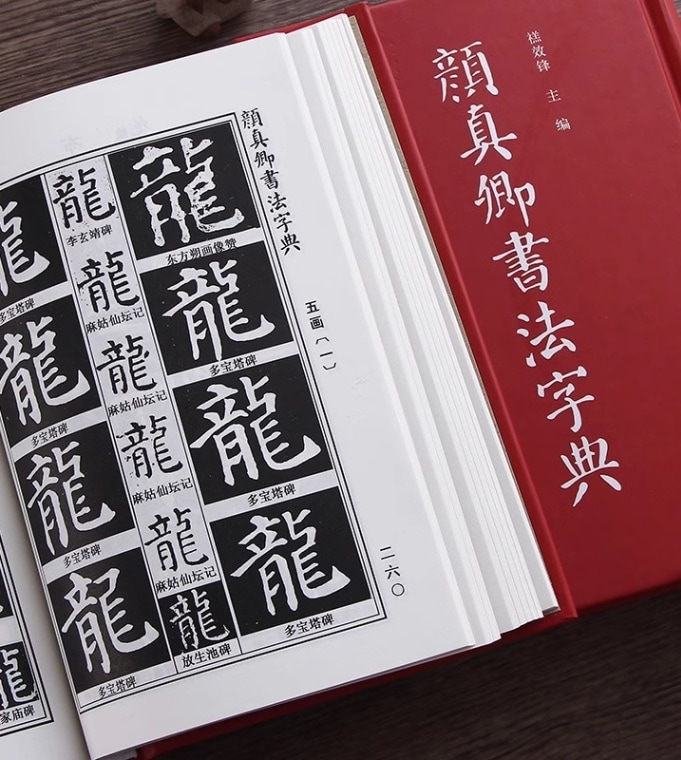 顔真卿書法字典
禚效锋 主 编
顔真卿書法字典
五画〔一〕
二六〇
龍
东方朔画像赞
龍
多宝塔碑
龍
多宝塔碑
龍
多宝塔碑
龍
李玄靖碑
龍
麻姑仙坛记
龍
麻姑仙坛记
龍
麻姑仙坛记
龍
麻姑仙坛记
龍
放生池碑
龍
多宝塔碑
龍
多宝塔碑
龍
多宝塔碑
龍
多宝塔碑
龍
家庙碑